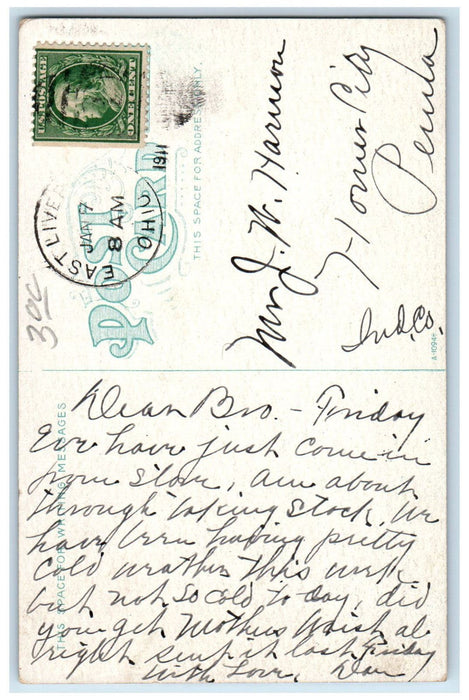 U.S. POSTAGE
ONE CENT
EAST LIVER
JAN 7
8 AM
1911
OHIO
30c
POST CARD
THIS SPACE FOR ADDRESS ONLY.
Mr J. W. Harrison
Homer City
Penna
Ind. Co.
A-10944
THIS SPACE FOR WRITING MESSAGES
Dear Bro - Friday
Eve have just come in
from store, am about
through taking stock, we
have been having pretty
cold weather this week
but not so cold to day, did
you get Mothers Waist al
right sent it last Friday
With Love, Dear